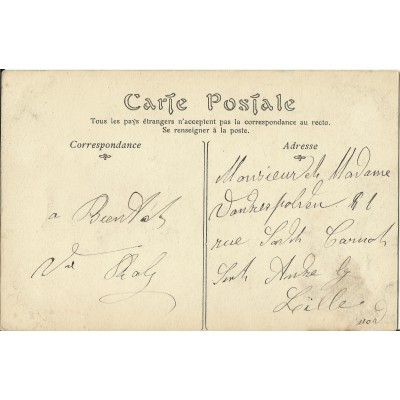 Carte Postale
Tous les pays étrangers n'acceptent pas la correspondance au recto.
Se renseigner à la poste.
Correspondance
Adresse
a Bientot
Monsieur et Madame
81
rue Sadi Carnot
Saint André lez
Lille
Nord